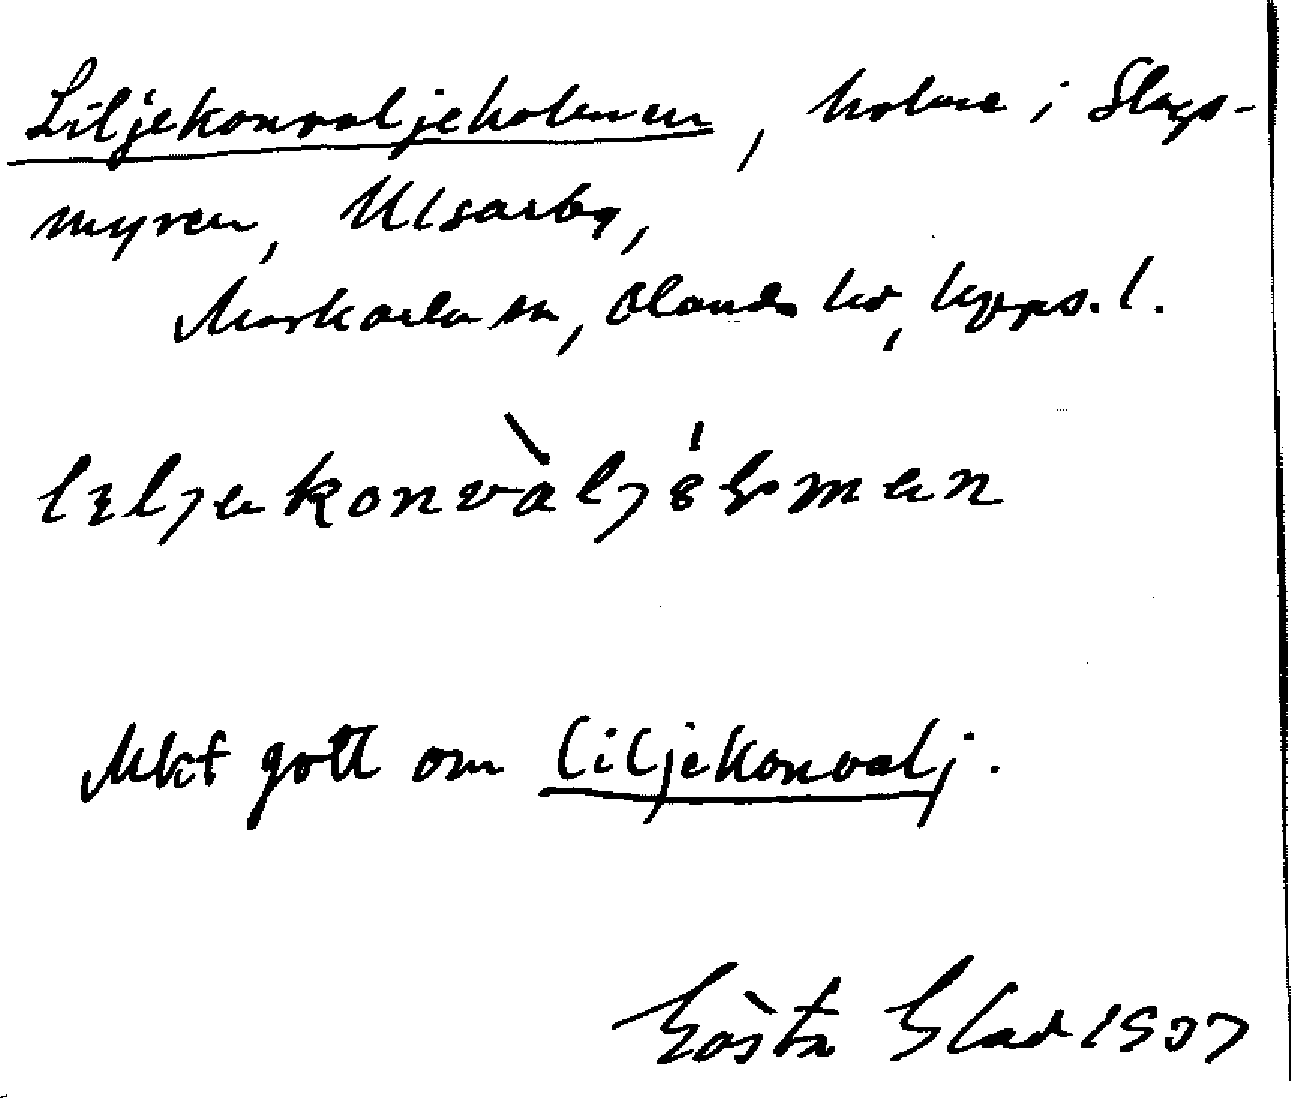 Liljekonvaljeholmen, holme i Slags-
myren, Ulsarby,
Morkarla sn, Olands hd, Upps. l.
liljekonvaljshȯlman
Mkt gott om liljekonvalj.
Gösta Blad 1937